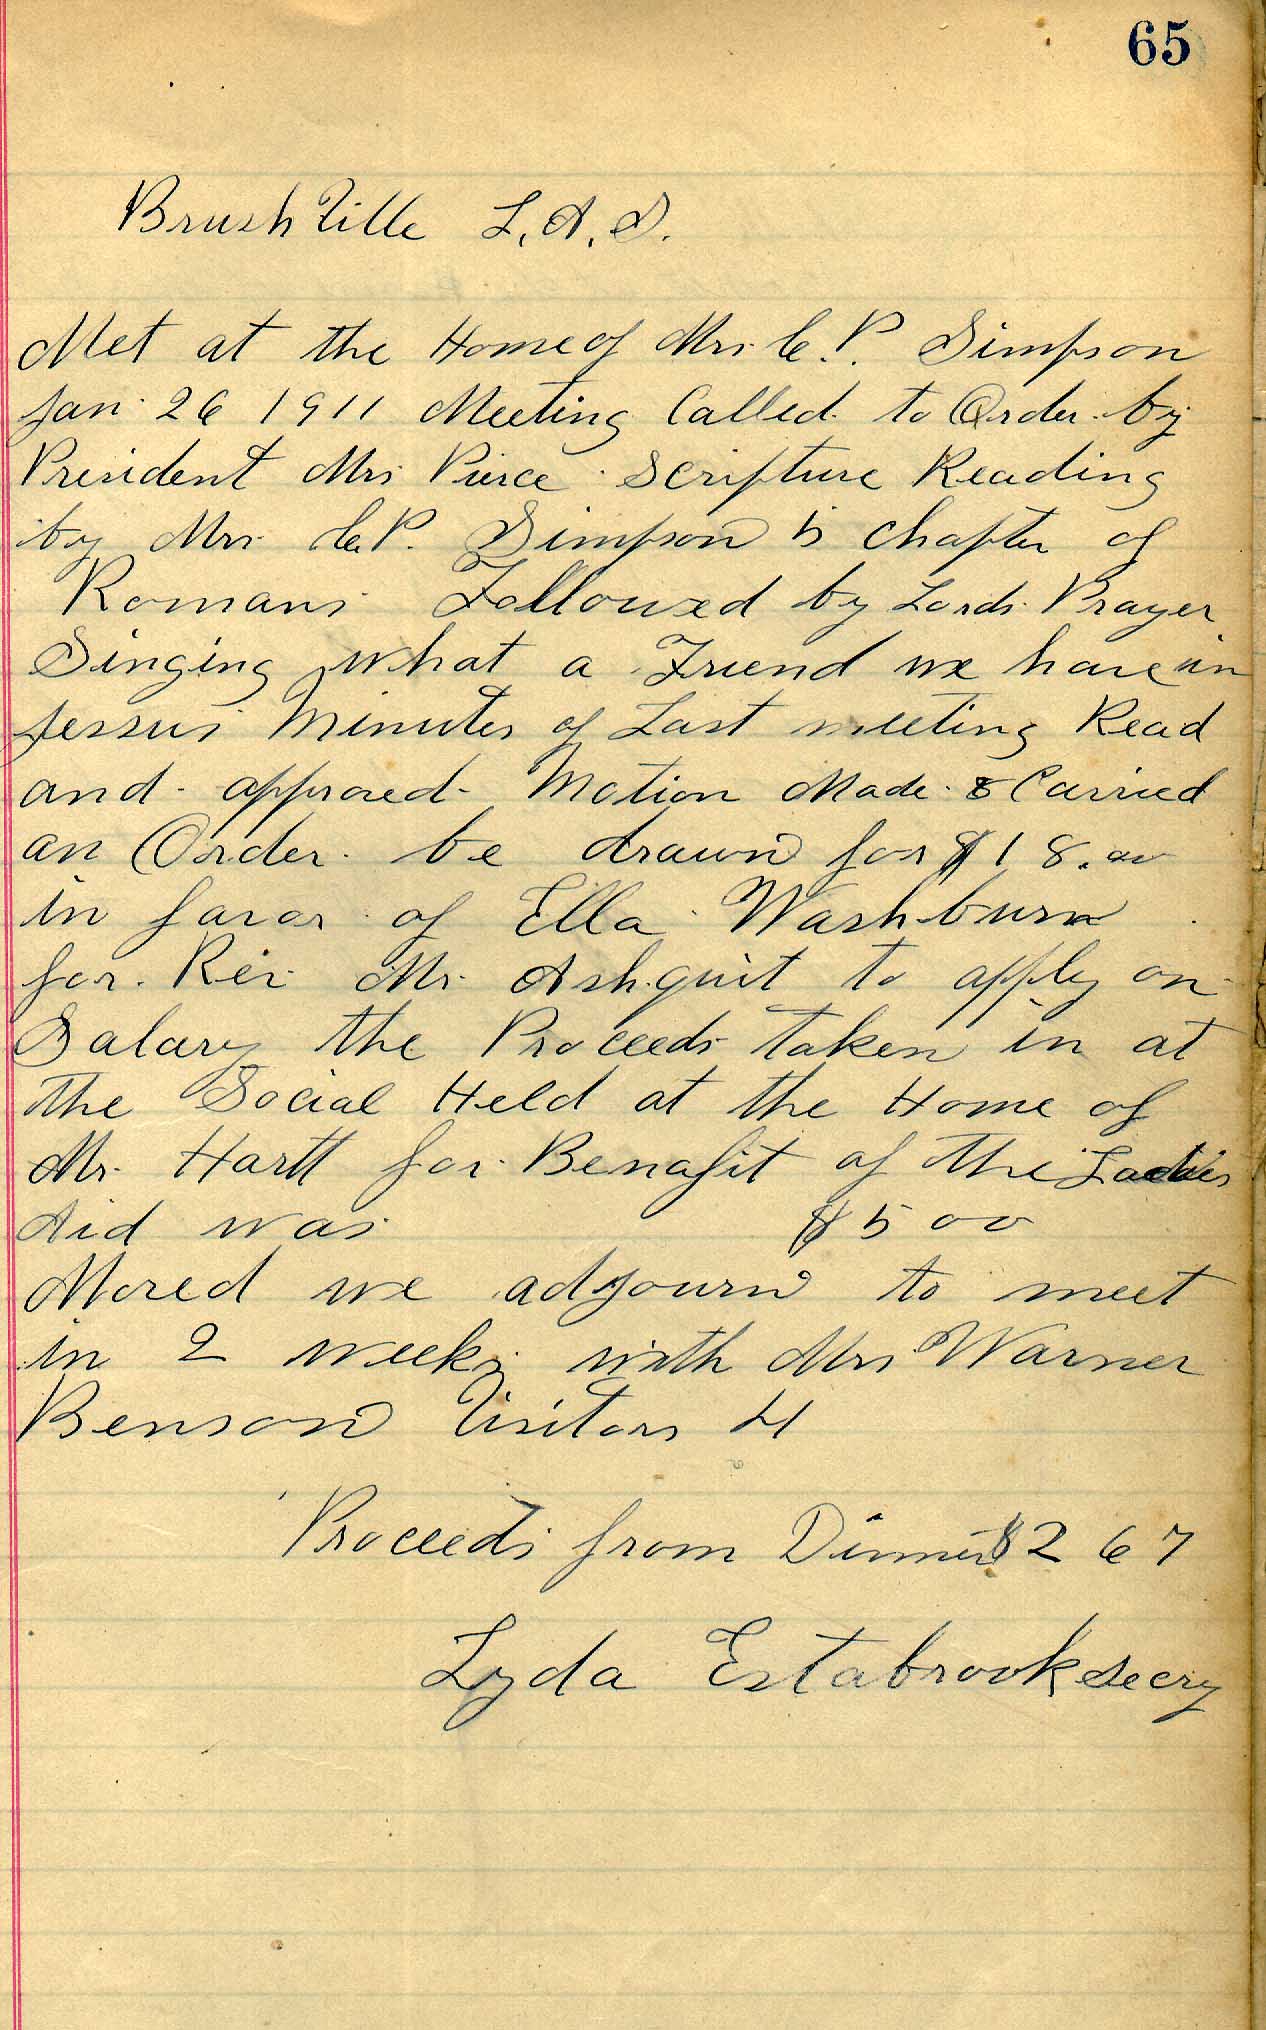 65
Brushville L. A. S.
Met at the Home of Mrs C. P. Simpson
Jan. 26 1911 Meeting Called to Order by
President Mrs Pierce Scripture Reading
by Mrs C. P. Simpson 5 chapter of
Romans Followed by Lords Prayer
Singing what a Friend we have in
Jessus Minutes of Last meeting Read
and approved Motion Made & Carried
an Order be drawn for $18.00
in favor of Ella Washburn
for Rev Mr. Ashquit to apply on
Salary the Proceeds taken in at
the Social Held at the Home of
Mr. Hartt for Benafit of the Ladies
Aid was $5 00
Moved we adjourn to meet
in 2 weeks with Mrs Warner
Benson Visitors 4
Proceeds from Dinner $2 67
Lyda Estabrook Secry